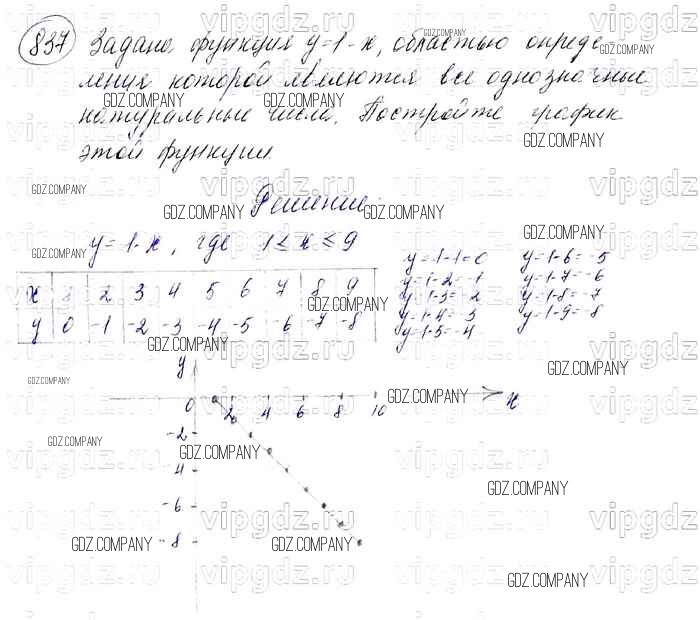 837 Задана функция y=1-x, областью опреде-
ления которой являются все однозначные
натуральные числа. Постройте график
этой функции.
Решение.
y=1-x, где 1≤x≤9
x 1 2 3 4 5 6 7 8 9
y 0 -1 -2 -3 -4 -5 -6 -7 -8
y=1-1=0
y=1-2=-1
y=1-3=-2
y=1-4=-3
y=1-5=-4
y=1-6=-5
y=1-7=-6
y=1-8=-7
y=1-9=-8
y
0 2 4 6 8 10 x
-2
-4
-6
-8
vipgdz.ru
GDZ.COMPANY